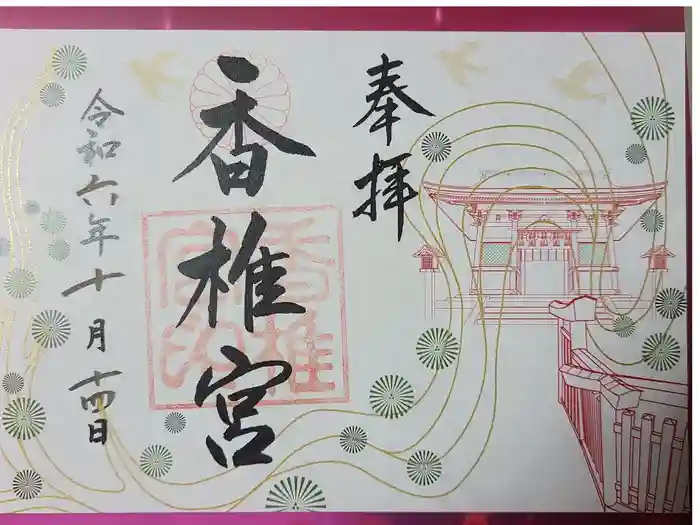 奉拝
香椎宮
香椎宮印
令和六年十月十四日